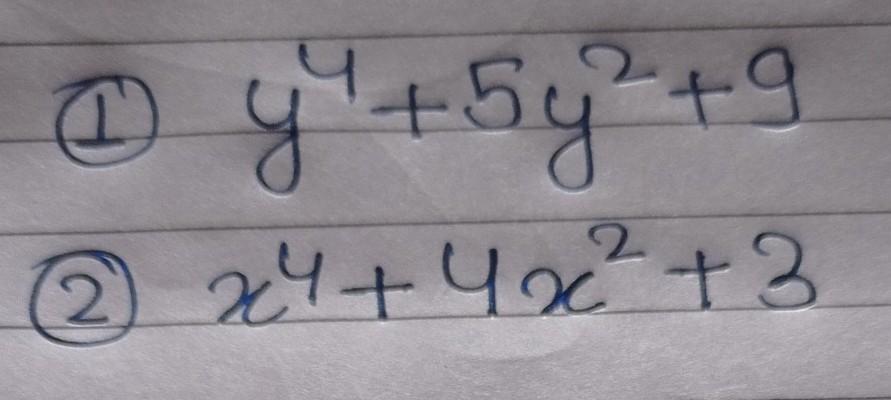 ① y⁴ + 5y² + 9
② x⁴ + 4x² + 3